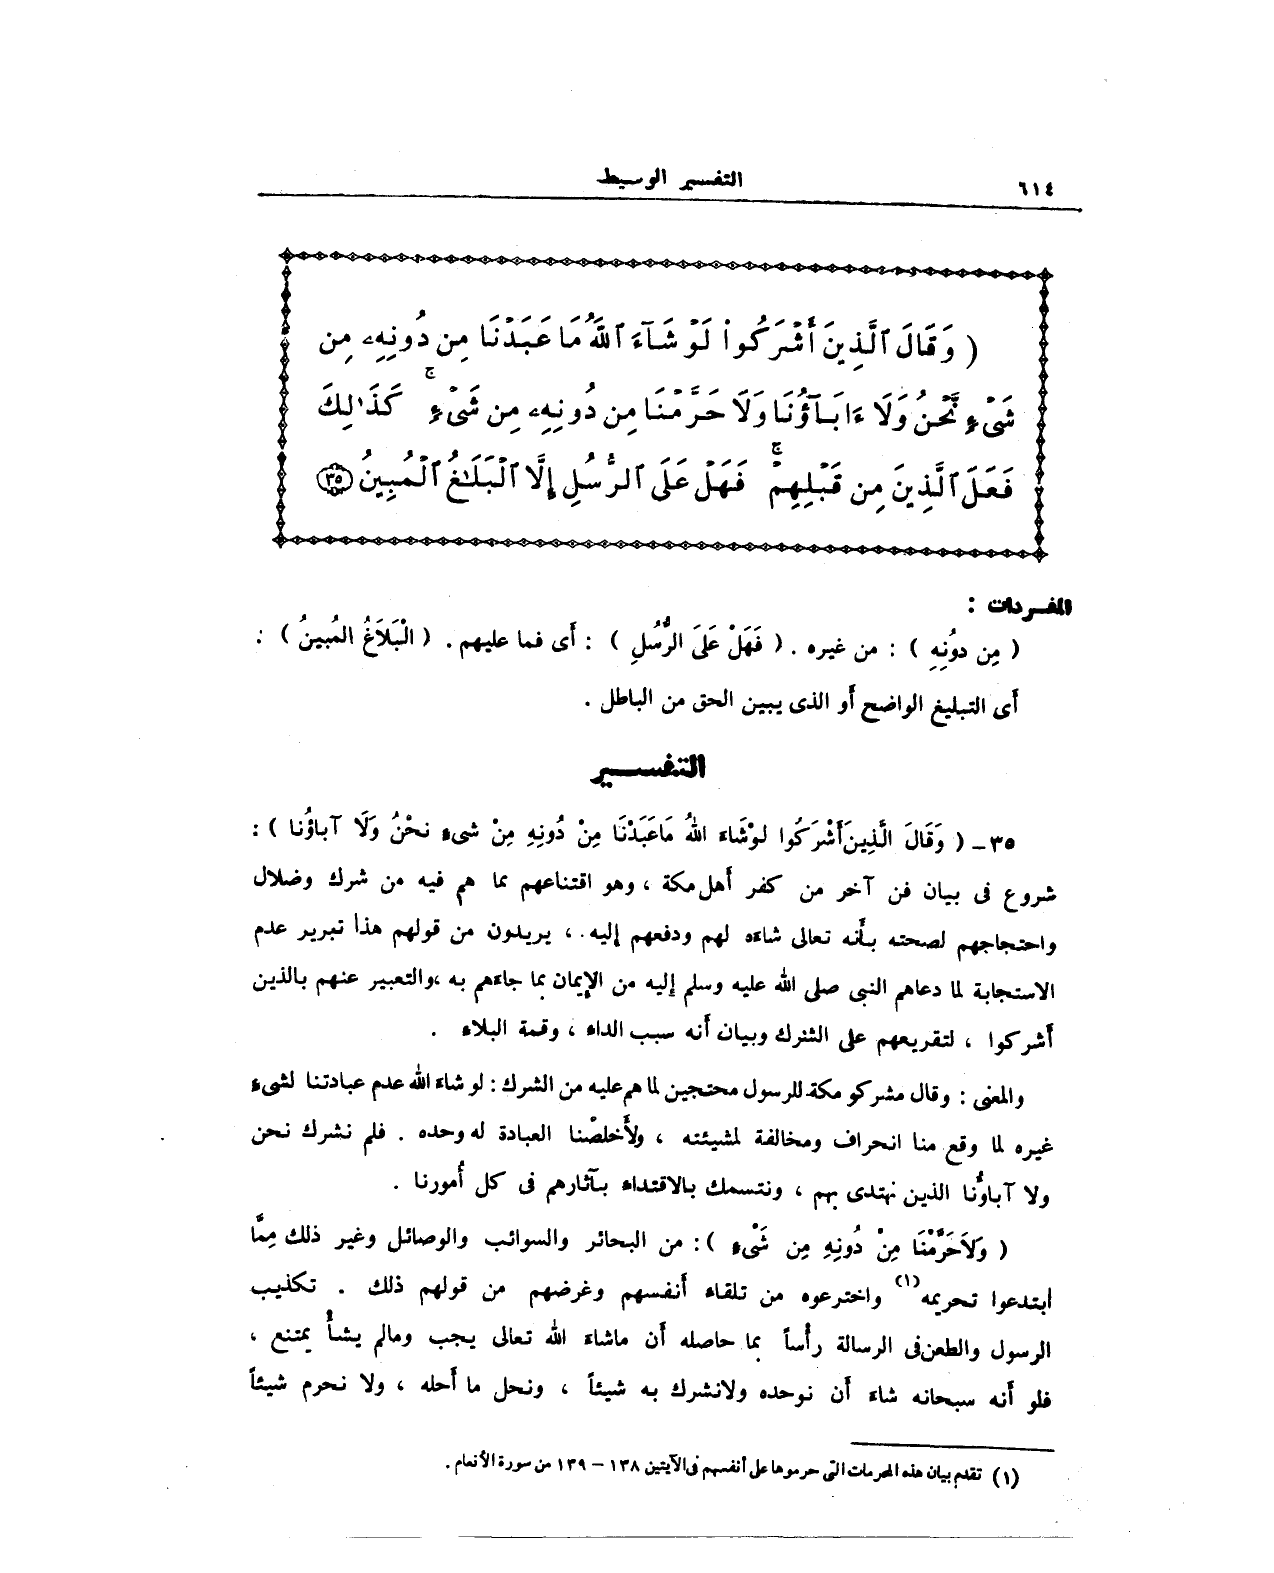 ٦١٤
التفسير الوسيط
( وَقَالَ ٱلَّذِينَ أَشْرَكُوا۟ لَوْ شَآءَ ٱللَّهُ مَا عَبَدْنَا مِن دُونِهِۦ مِن
شَىْءٍ نَّحْنُ وَلَآ ءَابَآؤُنَا وَلَا حَرَّمْنَا مِن دُونِهِۦ مِن شَىْءٍ ۚ كَذَٰلِكَ
فَعَلَ ٱلَّذِينَ مِن قَبْلِهِمْ ۚ فَهَلْ عَلَى ٱلرُّسُلِ إِلَّا ٱلْبَلَٰغُ ٱلْمُبِينُ ٣٥
المفـردات :
( مِن دوُنِهِ ) : من غيره . ( فَهَلْ عَلَىَ الرُّسُلِ ) : أى فما عليهم . ( الْبَلَاغُ المُبينُ ) :
أى التبليغ الواضح أو الذى يبين الحق من الباطل .
التفســـير
٣٥ ـ ( وَقَالَ الَّذِينَ أَشْرَكُوا لوْشَاءَ اللهُ مَاعَبَدْنَا مِنْ دُونِهِ مِنْ شىءٍ نحْنُ وَلَا آباؤُنا ) :
شروع فى بيان فن آخر من كفر أهل مكة ، وهو اقتناعهم بما هم فيه من شرك وضلال
واحتجاجهم لصحته بأنه تعالى شاءه لهم ودفعهم إليه . ، يريدون من قولهم هذا تبرير عدم
الاستجابة لما دعاهم النبى صلى الله عليه وسلم إليه من الإيمان بما جاءهم به ،والتعبير عنهم بالذين
أشركوا ، لتقريعهم على الشرك وبيان أنه سبب الداء ، وقمة البلاء .
والمعنى : وقال مشركو مكة للرسول محتجين لما هم عليه من الشرك : لو شاءَ الله عدم عبادتنا لشىءٍ
غيره لما وقع منا انحراف ومخالفة لمشيئته ، ولأَخلصْنا العبادة له وحده . فلم نشرك نحن
ولا آباؤُنا الذين نهتدى بهم ، ونتسمك بالاقتداء بآثارهم فى كل أُمورنا .
( وَلاَحَرَّمْنَا مِنْ دُونِهِ مِن شَىْءٍ ) : من البحائر والسوائب والوصائل وغير ذلك مِمَّا
ابتدعوا تحريمه(١) واخترعوه من تلقاء أنفسهم وغرضهم من قولهم ذلك . تكذيب
الرسول والطعن فى الرسالة رأْساً بما حاصله أن ماشاءَ اللهُ تعالى يجب ومالم يشأْ يمتنع ،
فلو أنه سبحانه شاءَ أن نوحده ولانشرك به شيئاً ، ونحل ما أحله ، ولا نحرم شيئاً
(١) تقدم بيان هذه المحرمات التى حرموها على أنفسهم فى الآيتين ١٣٨ – ١٣٩ من سورة الأنعام .